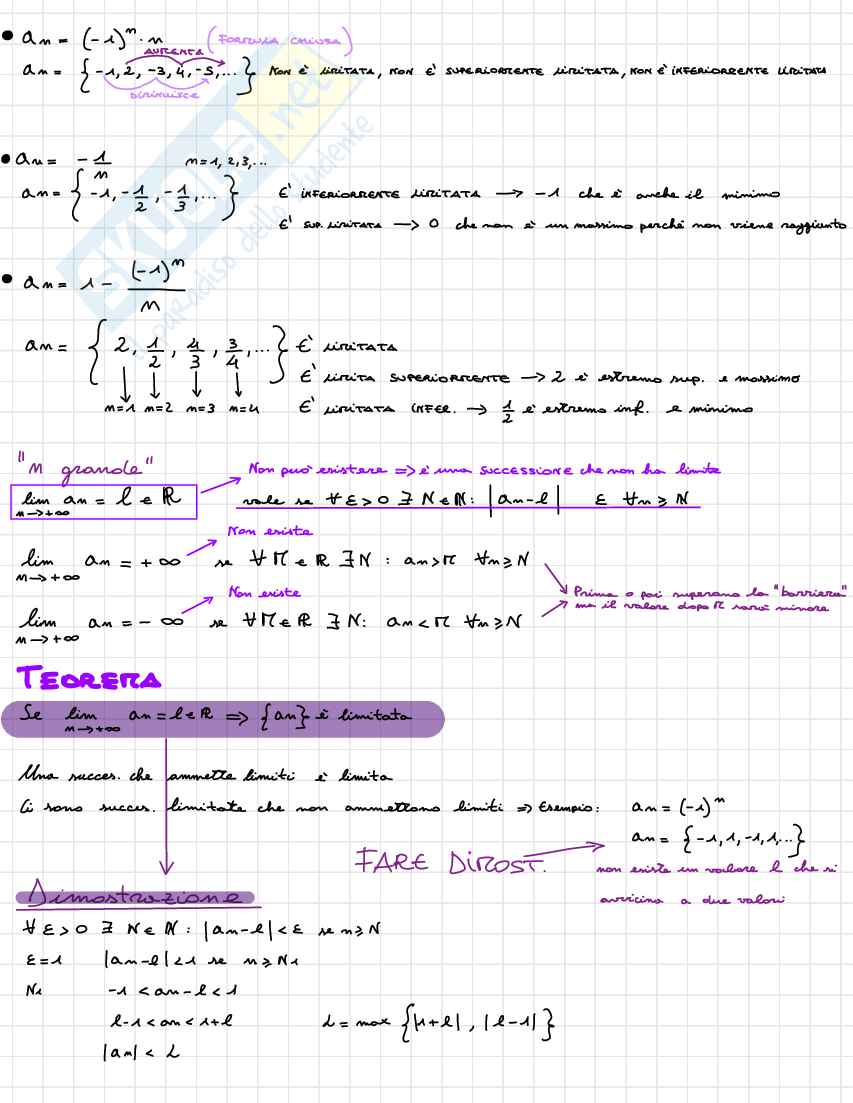 • an = (-1)^n · n (FORMULA CHIUSA)
AUMENTA
an = {-1, 2, -3, 4, -5, ...} NON È LIMITATA, NON È SUPERIORMENTE LIMITATA, NON È INFERIORMENTE LIMITATA
DIMINUISCE
• an = -1/n n=1,2,3,...
an = {-1, -1/2, -1/3, ...} E' INFERIORMENTE LIMITATA → -1 che è anche il minimo
E' SUP. LIMITATA → 0 che non è un massimo perché non viene raggiunto
• an = 1 - (-1)^n/n
an = {2, 1/2, 4/3, 3/4, ...} E' LIMITATA
E' LIMITA SUPERIORMENTE → 2 è estremo sup. e massimo
n=1 n=2 n=3 n=4 E' LIMITATA INFER. → 1/2 è estremo inf. e minimo
"N grande"
Non può esistere => è una SUCCESSIONE che non ha limite
lim n→+∞ an = l ∈ ℝ
vale se ∀ε>0 ∃ N∈ℕ: |an-l| ε ∀n ≥ N
Non esiste
lim n→+∞ an = +∞ se ∀M∈ℝ ∃N : an>M ∀n≥N
Non esiste
Prima o poi superano la "barriera"
ma il valore dopo M sarà minore
lim n→+∞ an = -∞ se ∀M∈ℝ ∃N: an<M ∀n≥N
TEOREMA
Se lim n→+∞ an = l∈ℝ => {an} è limitata
Una succes. che ammette limiti è limita
Ci sono succes. limitate che non ammettono limiti => Esempio: an = (-1)^n
an = {-1, 1, -1, 1, ...}
FARE DIMOST.
non esiste un valore l che si
avvicina a due valori
Dimostrazione
∀ε>0 ∃ N∈ℕ : |an-l|<ε se n≥N
ε=1 |an-l|<1 se n≥N1
N1 -1 < an-l < 1
l-1 < an < 1+l L = max {|1+l|, |l-1|}
|an| < L
SKUOLA.net
il paradiso dello studente